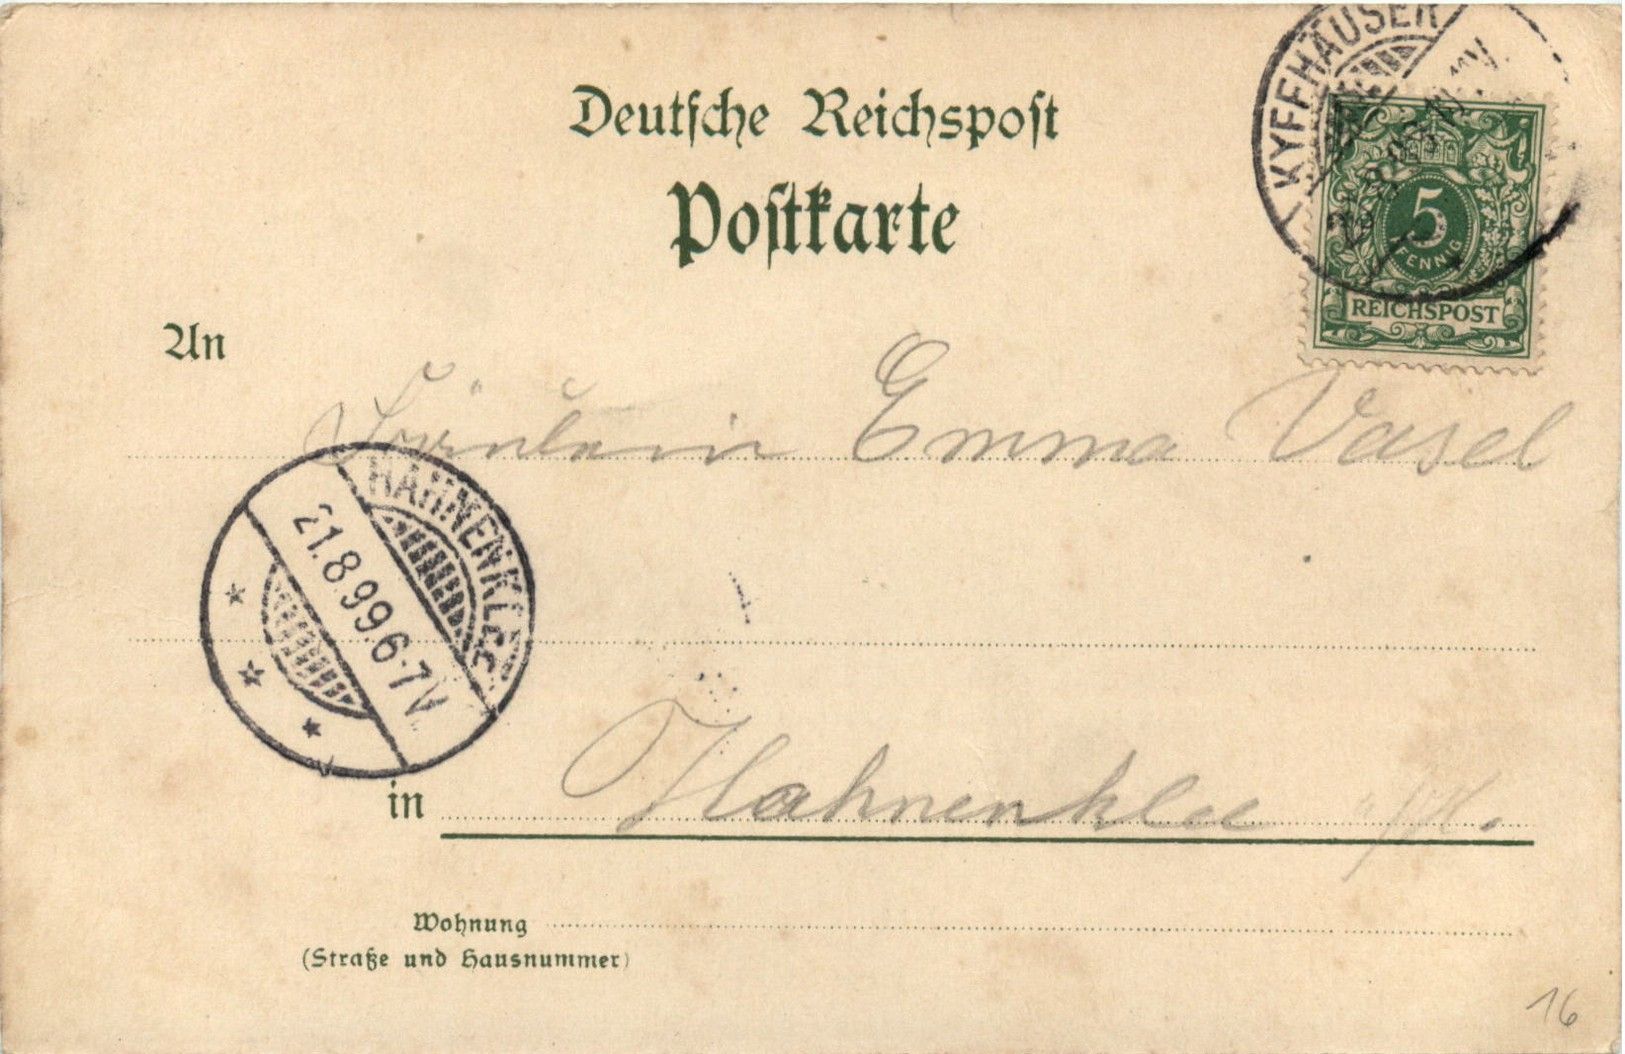 Deutsche Reichspost
Postkarte
KYFFHÄUSER
5
PFENNIG
REICHSPOST
An
Fräulein Emma Vasel
HAHNENKLEE
21.8.99.6-7V.
in Hahnenklee
Wohnung
(Straße und Hausnummer)
16